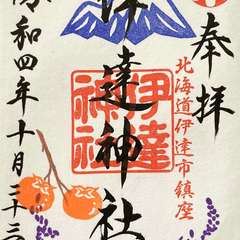 奉拝
北海道伊達市鎮座
伊達神社
伊達
神社
令和四年十月